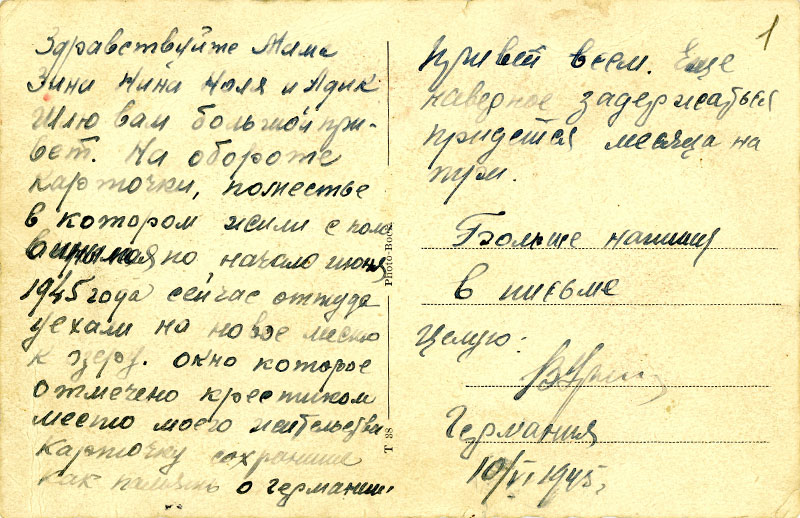 Здравствуйте Мама
Зина Нина Коля и Адик
Шлю вам большой при-
вет. На обороте
карточки, поместье
в котором жили с поло
вины мая по начало июня
1945 года сейчас оттуда
уехали на новое место
к озеру. окно которое
отмечено крестиком
место моего жительства
Карточку сохраните
как память о германии.
Photo-Bock
T 38
1
Привет всем. Еще
наверное задержаться
придется месяца на
три.
Больше напишу
в письме
Целую.
Германия
10/VI 1945.